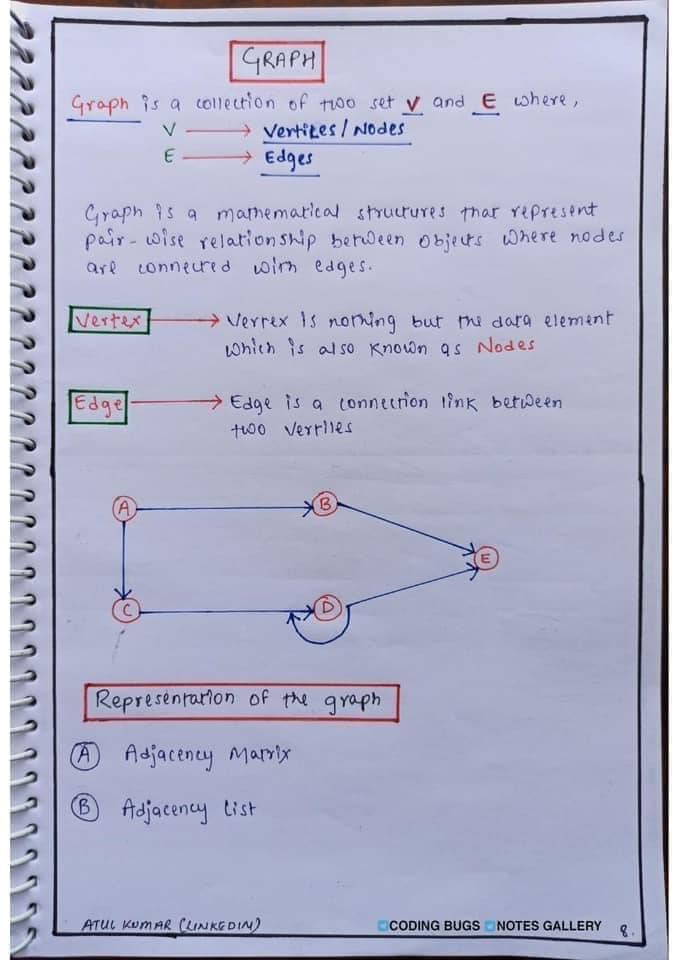 GRAPH
Graph is a collection of two set V and E where,
V → Vertices / Nodes
E → Edges
Graph is a mathematical structures that represent
pair-wise relationship between objects where nodes
are connected with edges.
Vertex → Vertex is nothing but the data element
which is also known as Nodes
Edge → Edge is a connection link between
two vertices
A
B
E
C
D
Representation of the graph
A Adjacency Matrix
B Adjacency List
ATUL KUMAR (LINKEDIN)
CODING BUGS NOTES GALLERY
8.